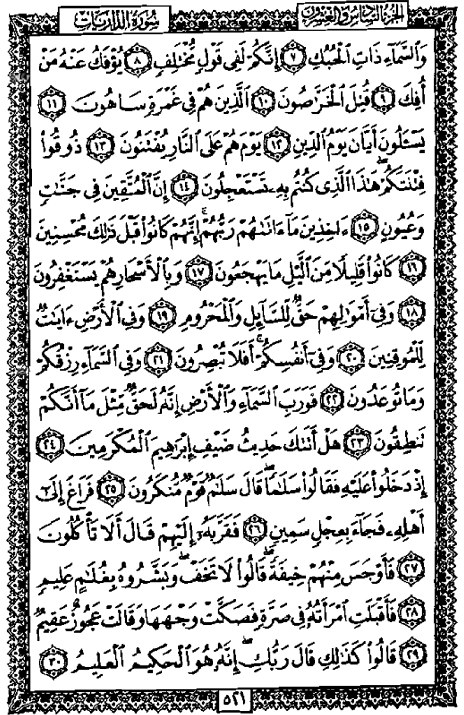 الجزء السادس والعشرون
سورة الذاريات
وَالسَّمَآءِ ذَاتِ الْحُبُكِ ٧ إِنَّكُمْ لَفِى قَوْلٍ مُّخْتَلِفٍ ٨ يُؤْفَكُ عَنْهُ مَنْ
أُفِكَ ٩ قُتِلَ الْخَرَّاصُونَ ١٠ الَّذِينَ هُمْ فِى غَمْرَةٍ سَاهُونَ ١١
يَسْـَٔلُونَ أَيَّانَ يَوْمُ الدِّينِ ١٢ يَوْمَ هُمْ عَلَى النَّارِ يُفْتَنُونَ ١٣ ذُوقُوا۟
فِتْنَتَكُمْ هَٰذَا الَّذِى كُنتُم بِهِۦ تَسْتَعْجِلُونَ ١٤ إِنَّ الْمُتَّقِينَ فِى جَنَّٰتٍ
وَعُيُونٍ ١٥ ءَاخِذِينَ مَآ ءَاتَىٰهُمْ رَبُّهُمْ ۚ إِنَّهُمْ كَانُوا۟ قَبْلَ ذَٰلِكَ مُحْسِنِينَ
١٦ كَانُوا۟ قَلِيلًا مِّنَ الَّيْلِ مَا يَهْجَعُونَ ١٧ وَبِالْأَسْحَارِ هُمْ يَسْتَغْفِرُونَ
١٨ وَفِىٓ أَمْوَٰلِهِمْ حَقٌّ لِّلسَّآئِلِ وَالْمَحْرُومِ ١٩ وَفِى الْأَرْضِ ءَايَٰتٌ
لِّلْمُوقِنِينَ ٢٠ وَفِىٓ أَنفُسِكُمْ ۚ أَفَلَا تُبْصِرُونَ ٢١ وَفِى السَّمَآءِ رِزْقُكُمْ
وَمَا تُوعَدُونَ ٢٢ فَوَرَبِّ السَّمَآءِ وَالْأَرْضِ إِنَّهُۥ لَحَقٌّ مِّثْلَ مَآ أَنَّكُمْ
تَنطِقُونَ ٢٣ هَلْ أَتَىٰكَ حَدِيثُ ضَيْفِ إِبْرَٰهِيمَ الْمُكْرَمِينَ ٢٤
إِذْ دَخَلُوا۟ عَلَيْهِ فَقَالُوا۟ سَلَٰمًا ۖ قَالَ سَلَٰمٌ قَوْمٌ مُّنكَرُونَ ٢٥ فَرَاغَ إِلَىٰٓ
أَهْلِهِۦ فَجَآءَ بِعِجْلٍ سَمِينٍ ٢٦ فَقَرَّبَهُۥٓ إِلَيْهِمْ قَالَ أَلَا تَأْكُلُونَ
٢٧ فَأَوْجَسَ مِنْهُمْ خِيفَةً ۖ قَالُوا۟ لَا تَخَفْ ۖ وَبَشَّرُوهُ بِغُلَٰمٍ عَلِيمٍ
٢٨ فَأَقْبَلَتِ امْرَأَتُهُۥ فِى صَرَّةٍ فَصَكَّتْ وَجْهَهَا وَقَالَتْ عَجُوزٌ عَقِيمٌ
٢٩ قَالُوا۟ كَذَٰلِكِ قَالَ رَبُّكِ ۖ إِنَّهُۥ هُوَ الْحَكِيمُ الْعَلِيمُ ٣٠
٥٢١